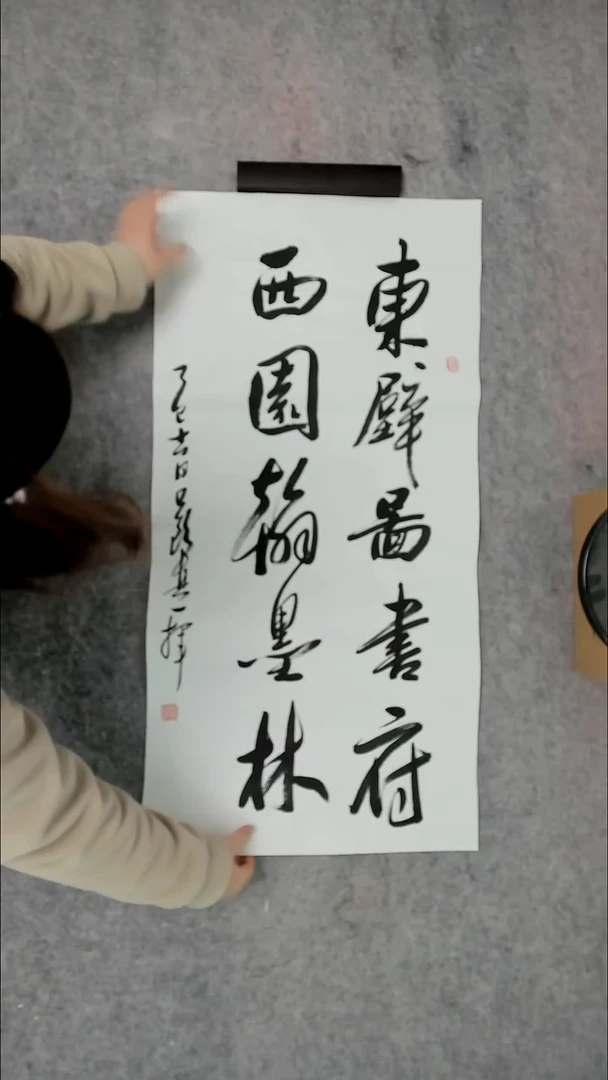 東壁图書府
西園翰墨林